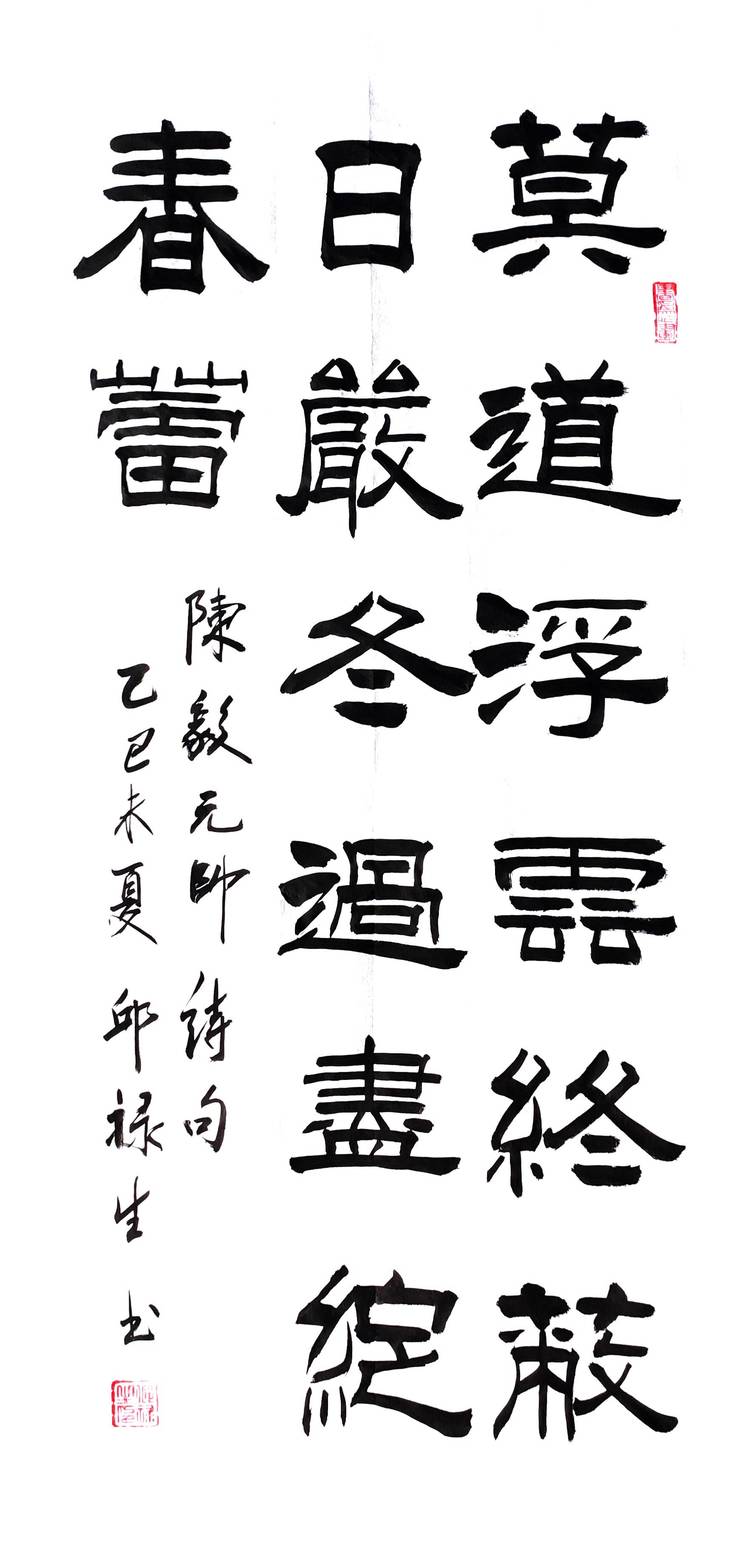 莫道浮雲終蔽
日嚴冬過盡綻
春蕾
陳毅元帥詩句
乙巳未夏邱禄生书